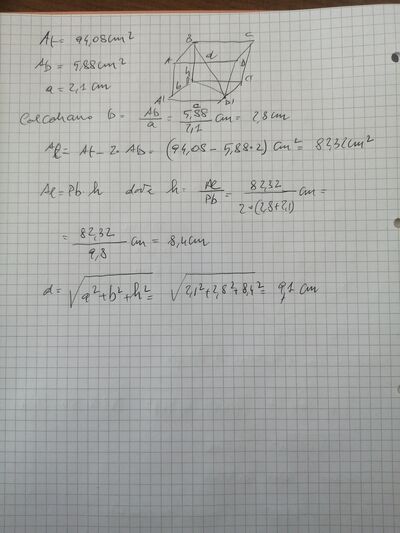 At = 94,08 cm²
Ab = 5,88 cm²
a = 2,1 cm
B C
A d D
h
b C'
A' a D'
Calcoliamo b = Ab/a = 5,88/2,1 cm = 2,8 cm
Al = At - 2·Ab = (94,08 - 5,88·2) cm² = 82,32 cm²
Al = Pb·h dove h = Al/Pb = 82,32/2·(2,8+2,1) cm =
= 82,32/9,8 cm = 8,4 cm
d = √a²+b²+h² = √2,1²+2,8²+8,4² = 9,1 cm